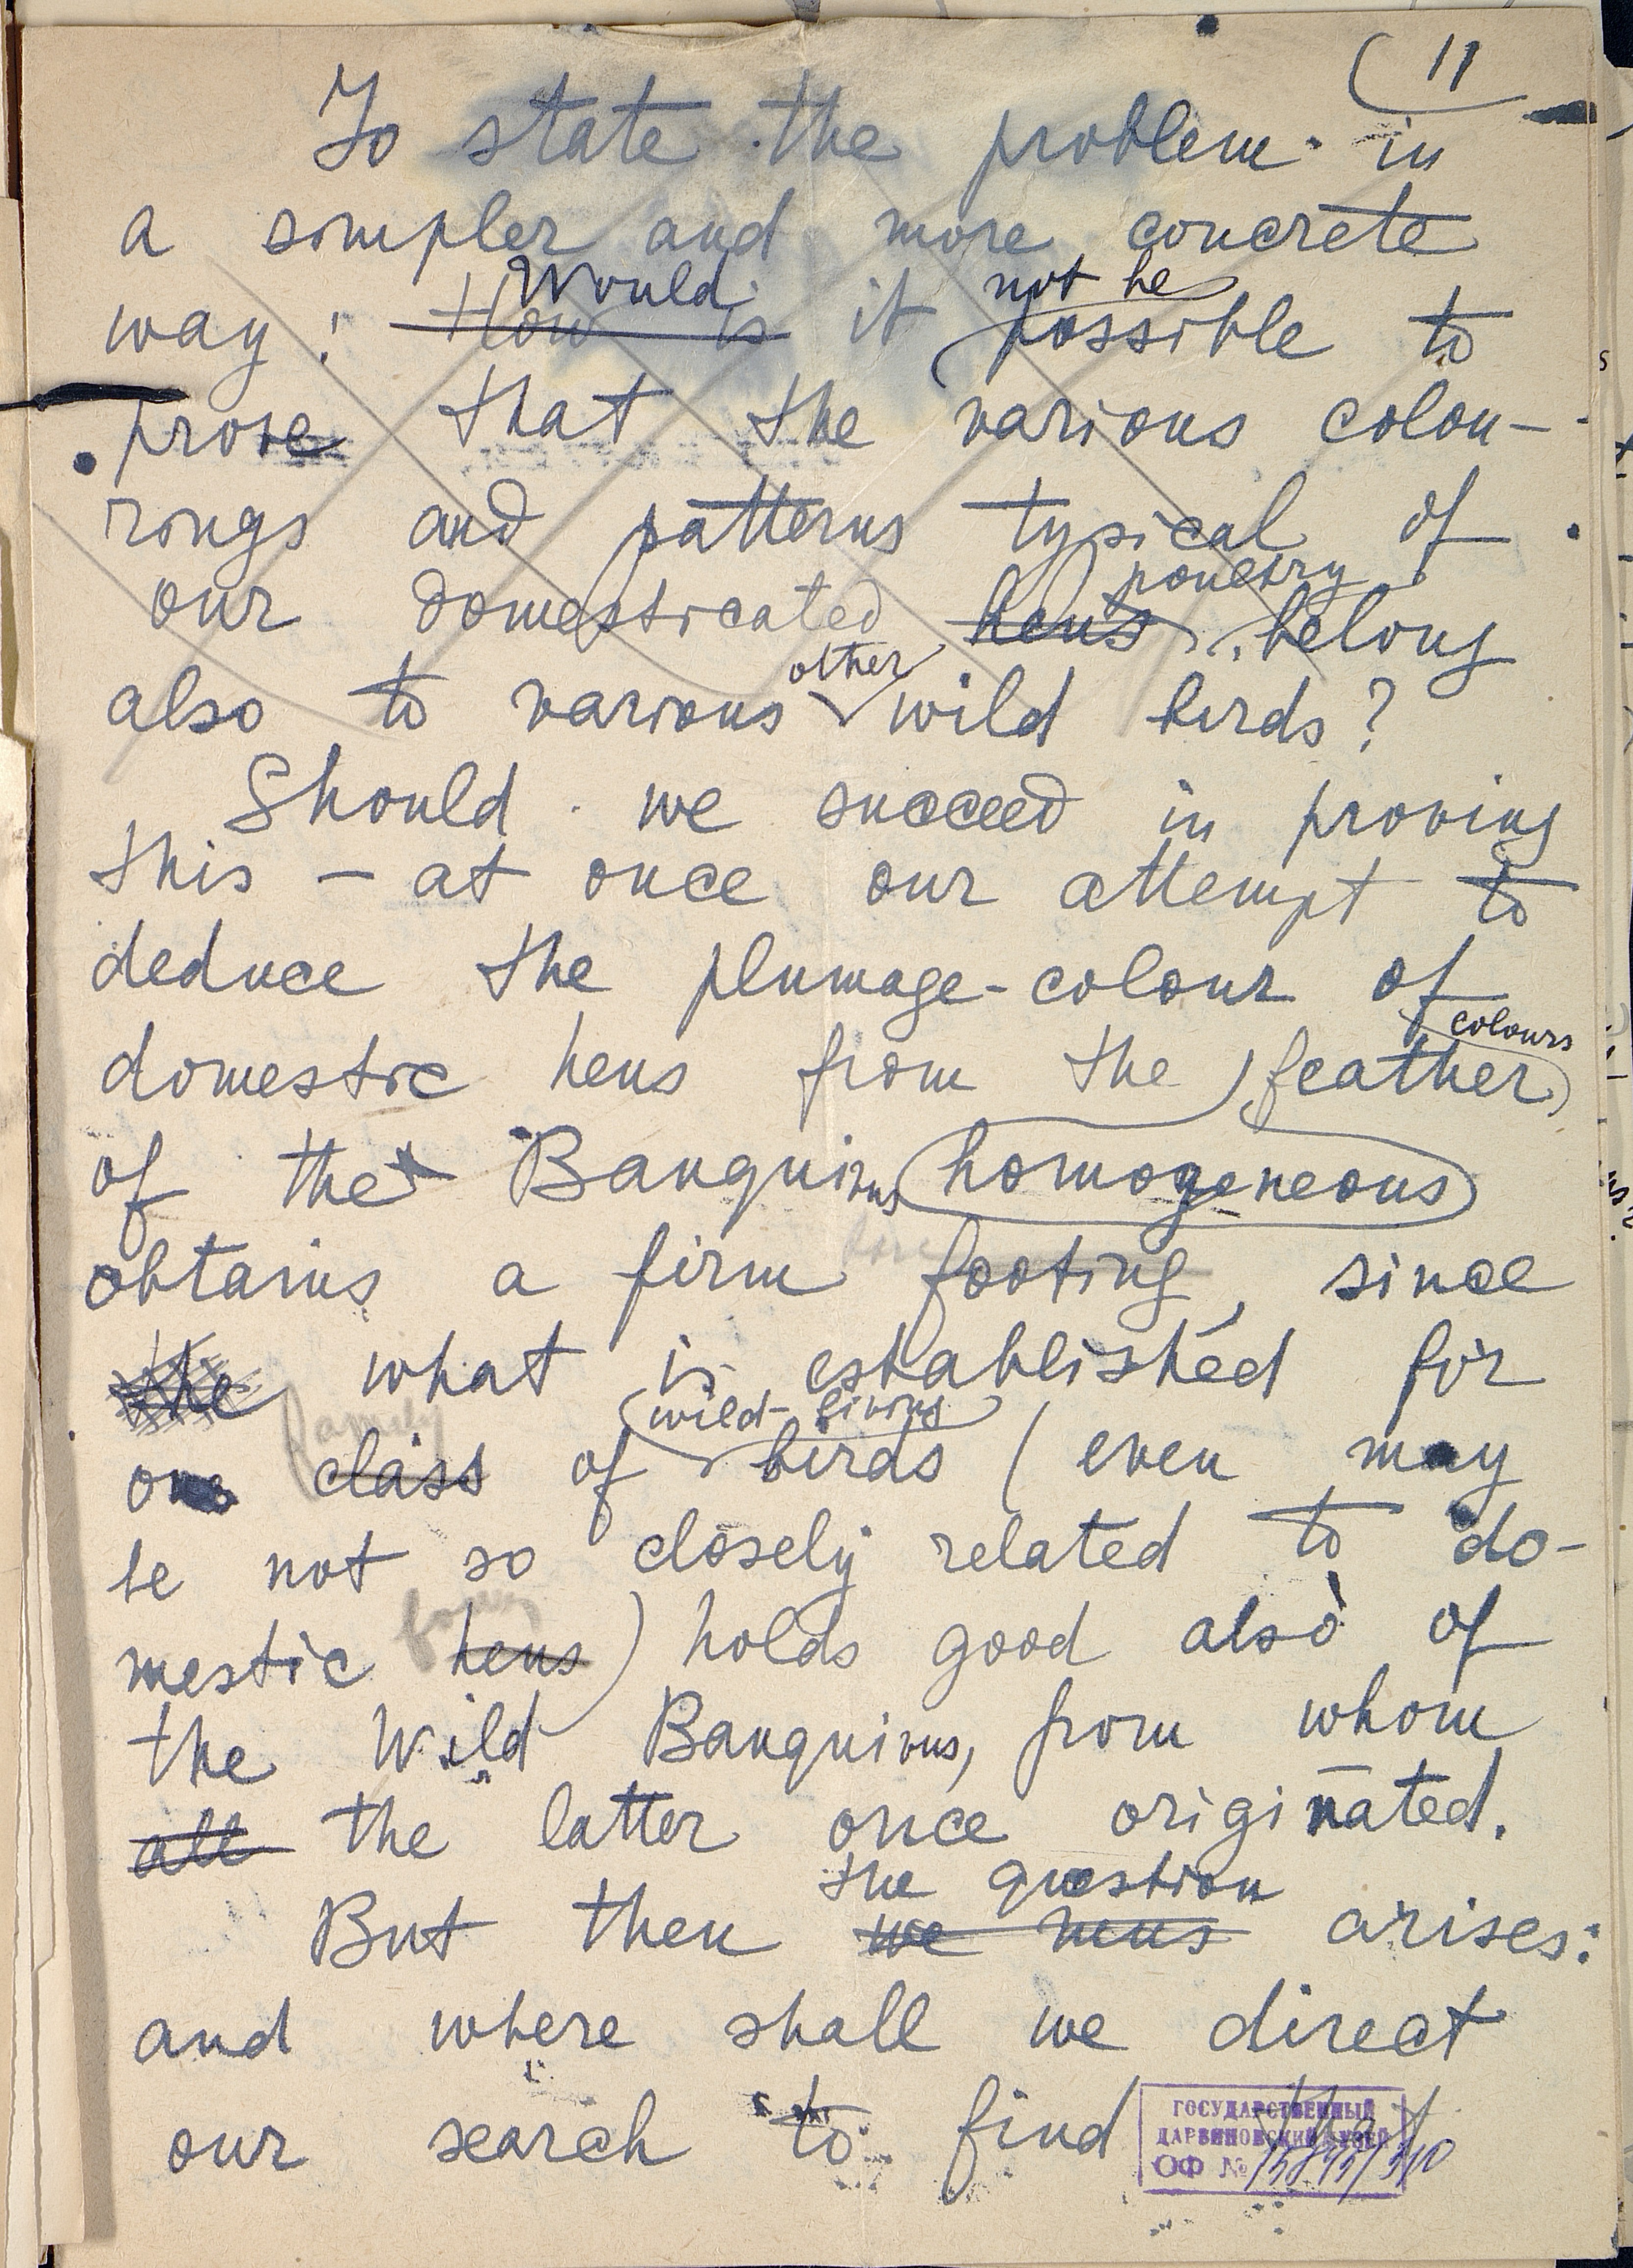 11
To state the problem in
a simpler and more concrete
Would not be
way: How is it possible to
prove that the various colou-
rings and patterns typical of
poultry
our domesticated hens belong
other
also to various wild birds?
Should we succeed in proving
this – at once our attempt to
deduce the plumage-colour of
colours
domestic hens from the feather
of the Banquivus homogeneous
obtains a firm footing, since
the what is established for
family wild-living
one class of birds (even may
be not so closely related to do-
mestic hens) holds good also of
the Wild Banquivus, from whom
all the latter once originated.
the question
But then we mus arises:
and where shall we direct
our search to find
ГОСУДАРСТВЕННЫЙ
ДАРВИНОВСКИЙ МУЗЕЙ
ОФ №